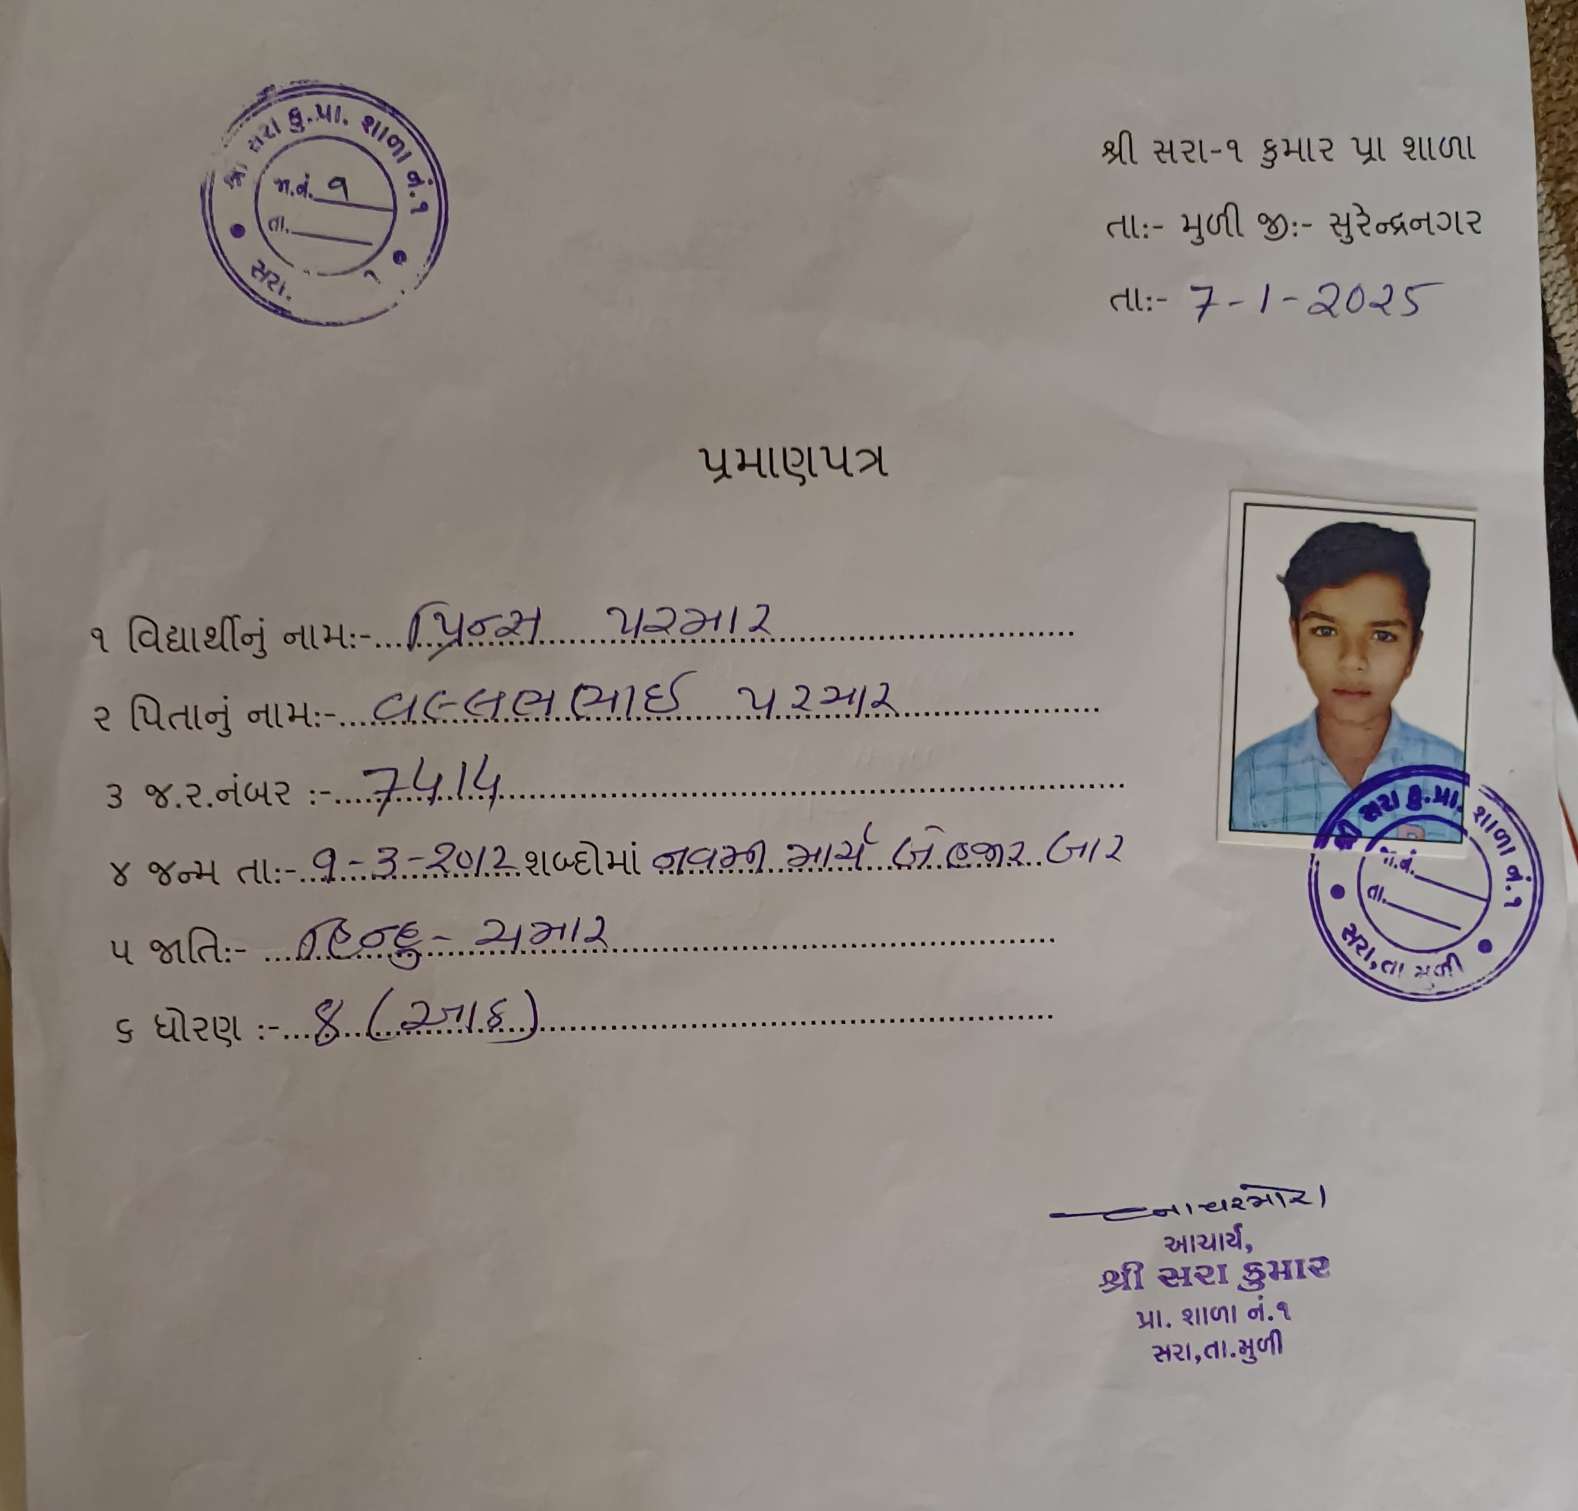 શ્રી સરા કુ.પ્રા. શાળા નં.૧
જા.નં. ૧
તા.
સરા.
શ્રી સરા-૧ કુમાર પ્રા શાળા
તા:- મુળી જી:- સુરેન્દ્રનગર
તા:- 7-1-2025
પ્રમાણપત્ર
૧ વિદ્યાર્થીનું નામ:- પ્રિન્સ પરમાર
૨ પિતાનું નામ:- વલ્લભભાઈ પરમાર
૩ જ.ર.નંબર :- 7414
૪ જન્મ તા:- ૧-3-૨૦૧૨ શબ્દોમાં નવમી માર્ચ બે હજાર બાર
૫ જાતિ:- હિન્દુ - ચમાર
૬ ધોરણ :- ૪ (આઠ)
શ્રી સરા કુ.પ્રા. શાળા નં.૧
જા.નં.
તા.
સરા,તા મુળી
આચાર્ય,
શ્રી સરા કુમાર
પ્રા. શાળા નં.૧
સરા,તા.મુળી